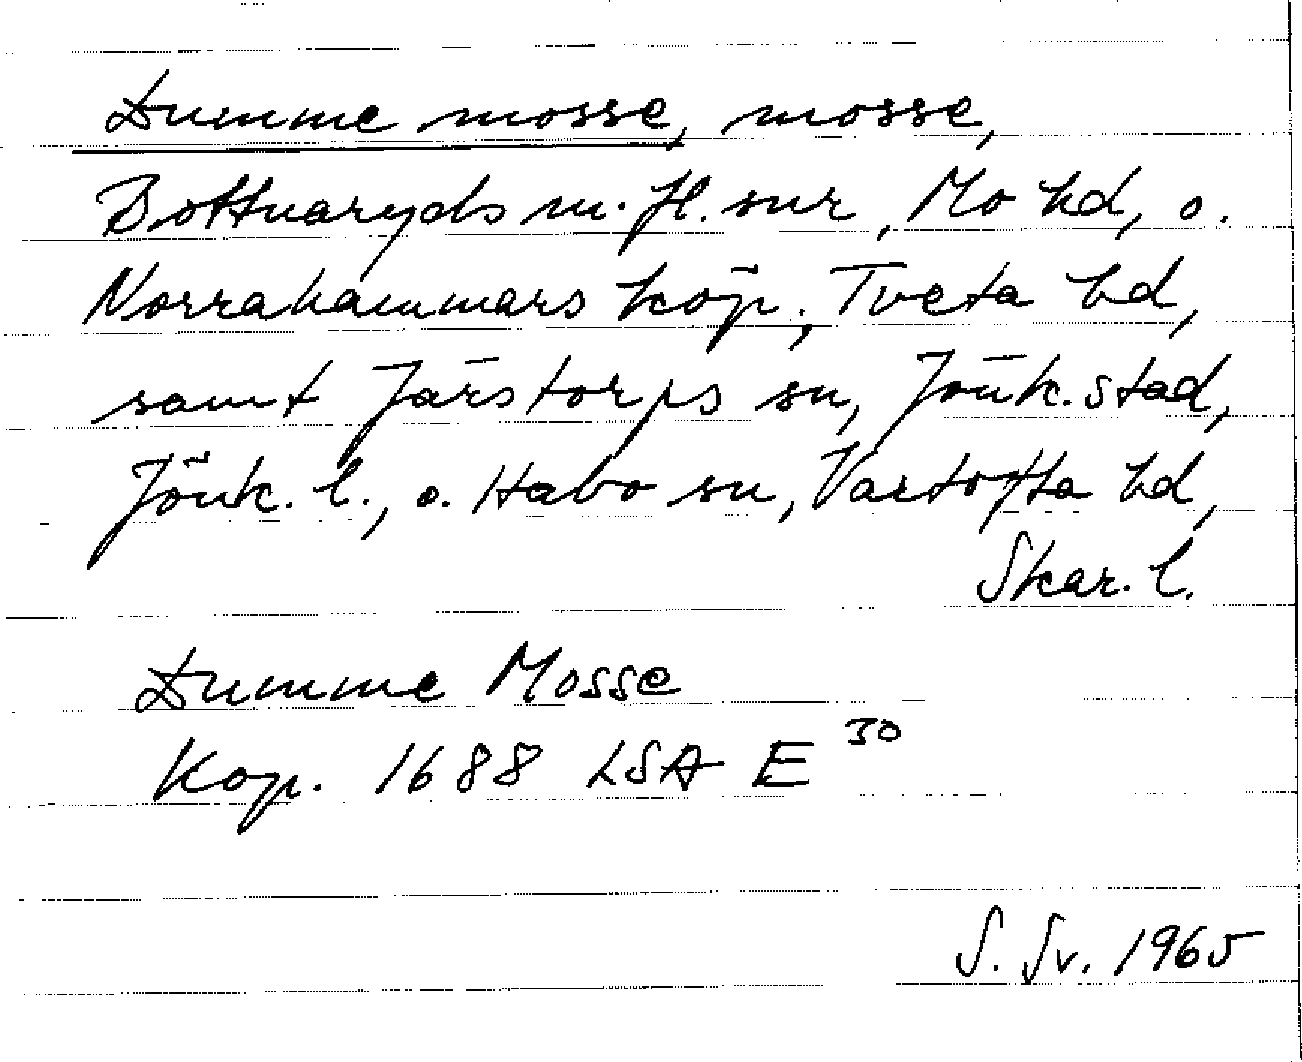 Dumme mosse, mosse,
Bottnaryds m. fl. snr, Mo hd, o.
Norrahammars köp., Tveta hd,
samt Järstorps sn, Jönk. stad,
Jönk. l., o. Habo sn, Vartofta hd,
Skar. l.
Dumme Mosse
Kop. 1688 LSA E 30
S. Sv. 1965